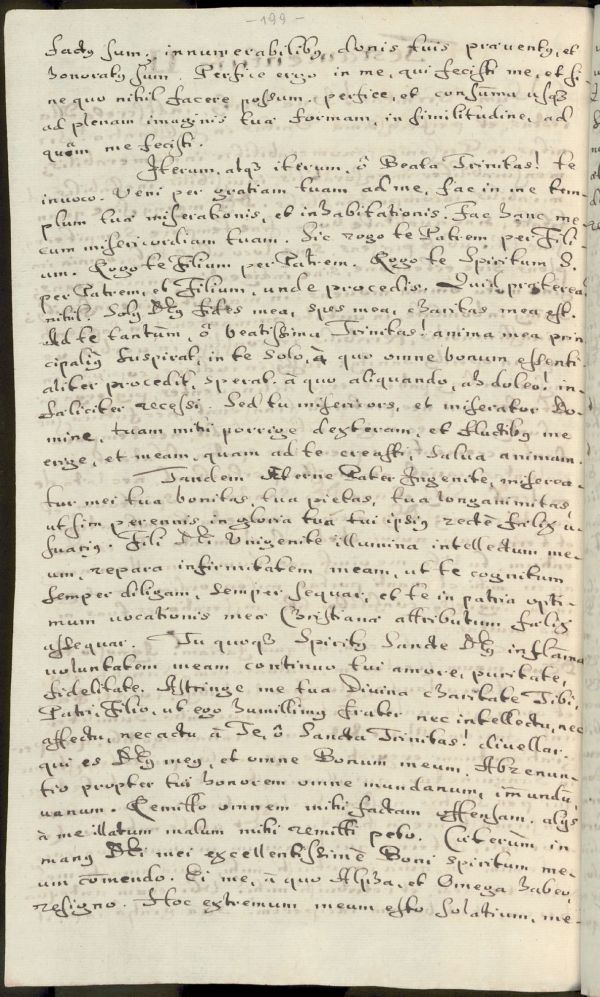 - 199 -
factus sum, innumerabilibus donis tuis praeventus, et
honoratus sum. Perfice ergo in me, qui fecisti me, et si-
ne quo nihil facere possum. perfice, et consuma usque
ad plenam imaginis tuae formam, in similitudine, ad
quam me fecisti.
Iterum, atque iterum, ô Beata Trinitas! te
invoco. Veni per gratiam tuam ad me, fac in me tem-
plum tuae miserationis, et inhabitationis. Fac hanc me
cum misericordiam tuam. Sic rogo te Patrem per Fili-
um. Rogo te Filium per Patrem. Rogo te Spiritum S.
per Patrem, et Filium, unde procedis. Quid praeterea?
nihil. Solus Deus fides mea, spes mea, charitas mea est.
Ad te tantum, ô beatissima Trinitas! anima mea prin
cipalius suspirat, in te solo, à quo omne bonum essenti
aliter procedit, sperat. à quo aliquando, ah doleo! in-
faeliciter recessi. Sed tu misericors, et miserator Do-
mine, tuam mihi porrige dexteram, et fluctibus me
erige, et meam, quam ad te creasti, salva animam.
Tandem Aeterne Pater Ingenite, miserea-
tur mei tua bonitas, tua pietas, tua longanimitas,
ut sim perennis in gloria tua tui ipsius recte faelix u-
suarius. Fili Dei Unigenite illumina intellectum me-
um, repara infirmitatem meam, ut te cognitum
semper diligam, semper sequar, et te in patria opti-
mum vocationis meae Christianae attributum faelix
assequar. Tu quoque Spiritus Sancte Deus inflama
voluntatem meam continuo tui amore, puritate,
fidelitate. Astringe me tua Divina charitate Tibi,
Patri, Filio, ut ego humillimus frater nec intellectu, nec
affectu, nec actu à Te, ô Sancta Trinitas! divellar.
qui es Deus meus, et omne Bonum meum. Abrenun-
tio propter tui honorem omne mundanum, immundu,
vanum. Remitto omnem mihi factam offensam. alijs
à me illatum malum mihi remitti peto. Caeterum in
manus Dei mei excellentissime Boni spiritum me-
um comendo. Ei me, à quo Alpha, et Omega habeo,
resigno. Hoc extremum meum esto solatium, me-